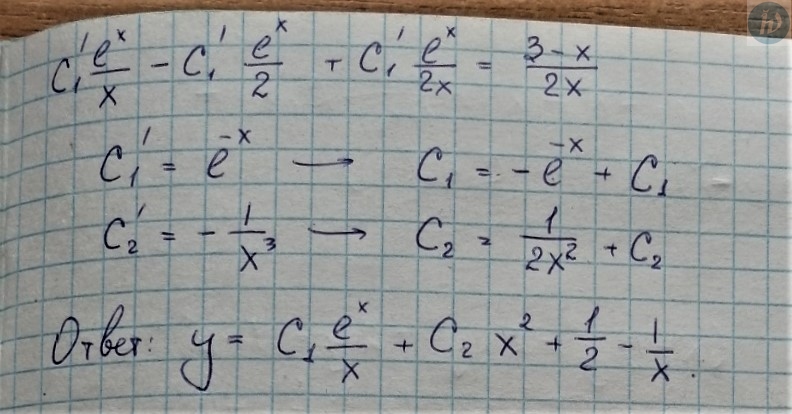 C₁' eˣ/x − C₁' eˣ/2 + C₁' eˣ/2x = 3−x/2x
C₁' = e⁻ˣ → C₁ = −e⁻ˣ + C₁
C₂' = − 1/x³ → C₂ = 1/2x² + C₂
Ответ: y = C₁ eˣ/x + C₂ x² + 1/2 − 1/x.